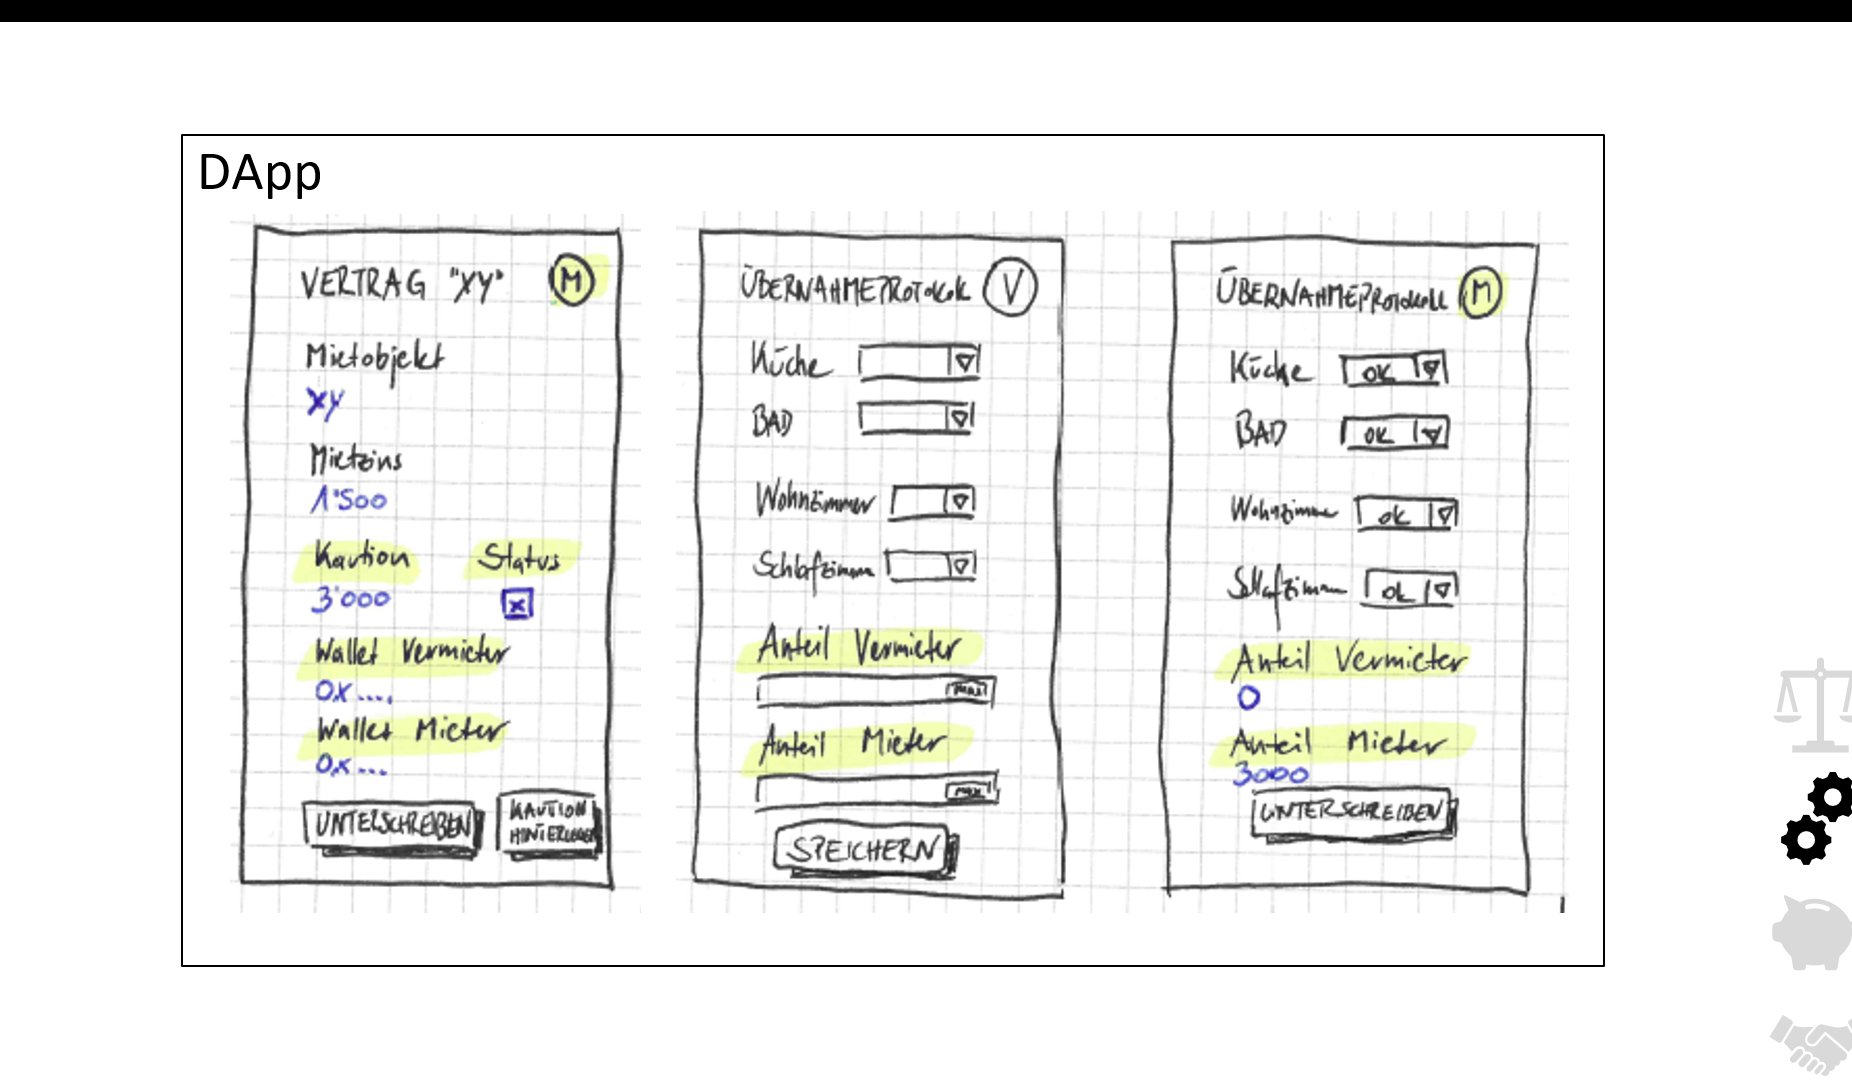 DApp
VERTRAG "XY" M
Mietobjekt
XY
Mietzins
1'500
Kaution Status
3'000 x
Wallet Vermieter
0x....
Wallet Mieter
0x...
UNTERSCHREIBEN
KAUTION
HINTERLEGEN
ÜBERNAHMEPROTOKOLL V
Küche
BAD
Wohnzimmer
Schlafzimmer
Anteil Vermieter
max
Anteil Mieter
max
SPEICHERN
ÜBERNAHMEPROTOKOLL M
Küche ok
BAD ok
Wohnzimmer ok
Schlafzimmer ok
Anteil Vermieter
0
Anteil Mieter
3000
UNTERSCHREIBEN